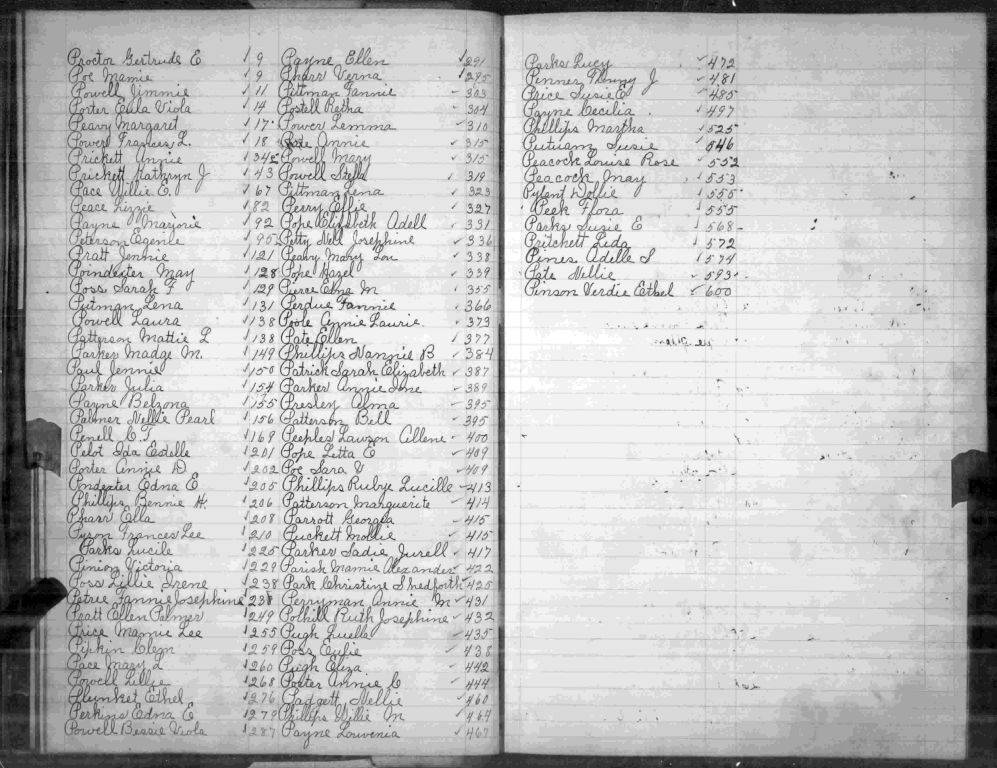 Proctor Gertrude E 9
Poe Mamie 9
Powell Jimmie 11
Porter Eula Viola 14
Peavy Margaret 17
Powers Frances L. 18
Prickett Annie 34
Prickett Kathryn J 43
Pace Willie E. 67
Peace Lizzie 82
Payne Marjorie 92
Peterson Egenie 95
Pratt Jennie 121
Poindexter May 128
Poss Sarah F 129
Pitman Lena 131
Powell Laura 138
Patterson Mattie L 138
Parker Madge M. 149
Paul Jennie 150
Parker Julia 154
Payne Belzona 155
Palmer Nellie Pearl 156
Penell C. 169
Pelot Ida Estelle 201
Porter Annie D 202
Pndexter Edna E 205
Phillips Bennie H. 206
Pharr Ella 208
Pyron Frances Lee 210
Parks Lucile 225
Pinion Victoria 229
Poss Lillie Irene 238
Petree Fannie Josephine 238
Pratt Ellen Palmer 249
Price Mamie Lee 255
Pipkin Clem 259
Pace Mary L 260
Powell Lillie 268
Plunket Ethel 276
Perkins Edna E 279
Powell Bessie Viola 287
Payne Ellen 291
Pharr Verna 295
Pittman Fannie 303
Postell Retha 304
Powers Lemma 310
Annie 315
Powell Mary 315
Powell Stella 319
Pittman Lena 323
Perry Effie 327
Pope Elizabeth Adell 331
Petty Nell Josephine 336
Peavy Mary Lou 338
Pope Hazel 339
Pierce Edna M 355
Perdue Fannie 366
Poole Annie Laurie. 373
Pate Ellen 377
Phillips Nannie B 384
Patrick Sarah Elizabeth 387
Parker Annie June 389
Presley Alma 395
Patterson Bell 395
Peeples Lawson Allene 400
Pope Letta E 409
Poe Sara V 409
Phillips Rubye Lucille 413
Patterson Marguerite 414
Parrott Georgia 415
Puckett Mollie 415
Parker Sadie Jurell 417
Parish Mamie Alexander 422
Park Christine Shedforth 425
Perryman Annie M 431
Polhill Ruth Josephine 432
Pugh Luella 435
Poss Eulie 438
Pugh Eliza 442
Porter Annie C 444
Padgett Nellie 460
Phillips Willie M 464
Payne Louvenia 467
Parks Lucy 472
Penner Penny J 481
Price Susie E 485
Payne Cecilia 497
Phillips Martha 525
Putnam Susie 546
Peacock Louise Rose 552
Peacock May 553
Pylant Dollie 555
Peek Flora 555
Parks Susie E 568
Pritchett Lida 572
Pines Adelle S 574
Pate Nellie 593
Pinson Verdie Ethel 600